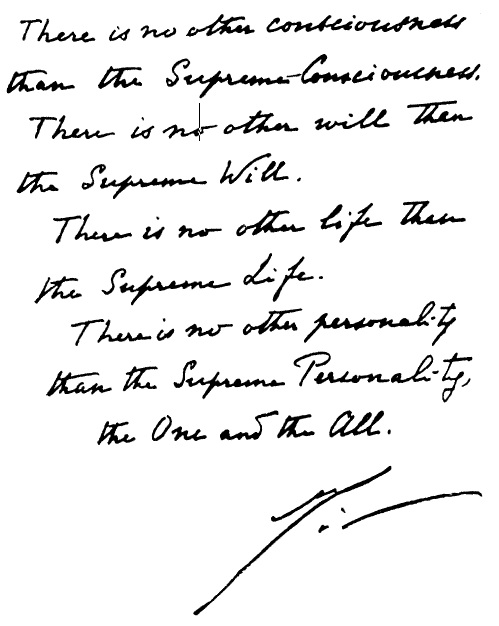 There is no other consciousness
than the Supreme Consciousness.
There is no other will than
the Supreme Will.
There is no other life than
the Supreme Life.
There is no other personality
than the Supreme Personality,
the One and the All.